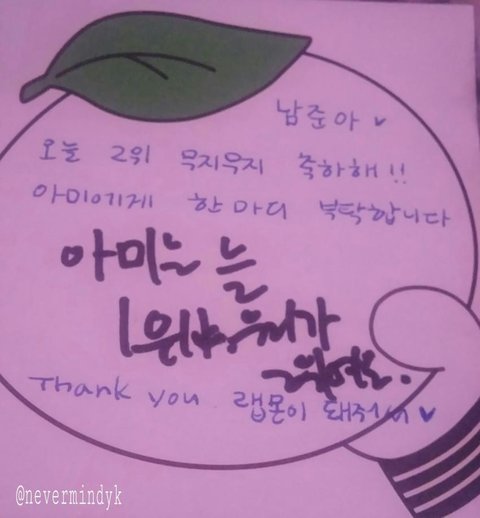 남준아
오늘 2위 무지무지 축하해!!
아미에게 한마디 부탁합니다
아미는 늘
1위야. 우리가
2위여도.
Thank you 랩몬이 돼줘서
@nevermindyk